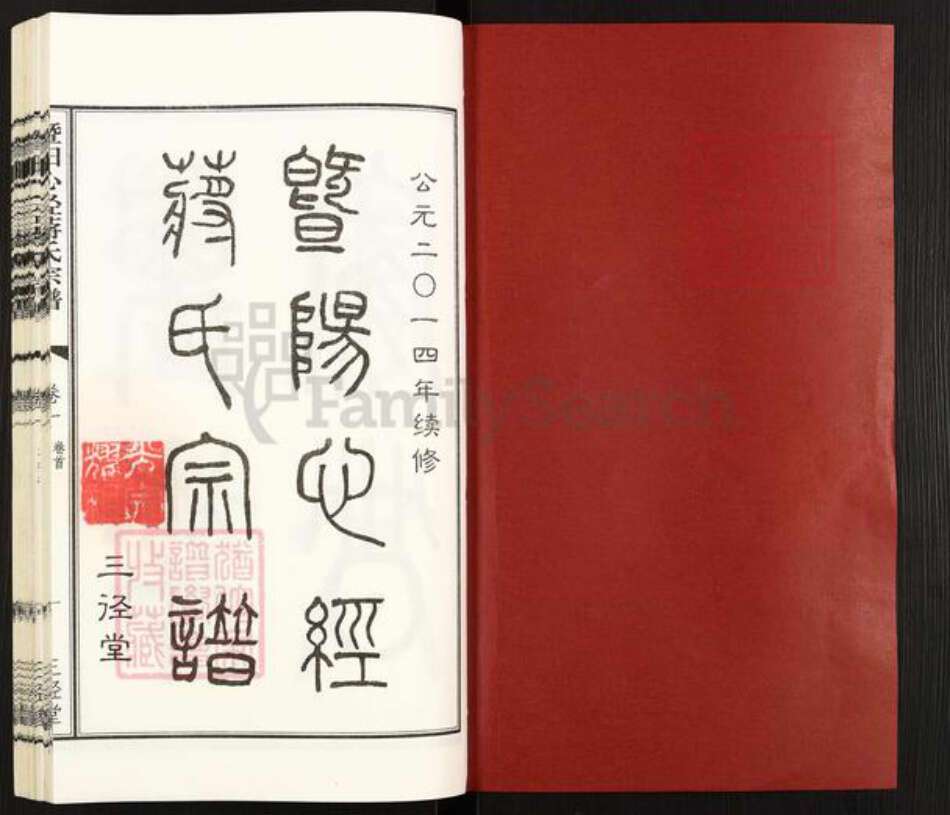 公元二〇一四年续修
暨陽心經
蔣氏宗譜
三径堂
氏宗譜
卷一
卷首
三径堂
FamilySearch